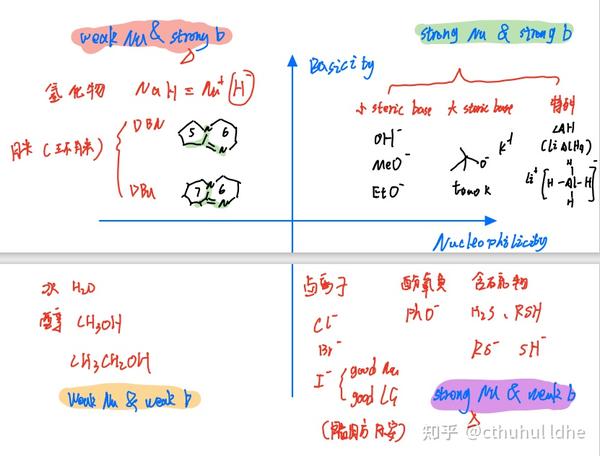 weak Nu & strong b
strong Nu & strong b
Basicity
氢化物 NaH = Na⁺ H⁻
小 steric base
大 steric base
特别
OH⁻
MeO⁻
EtO⁻
O⁻ K⁺
LAH
(LiAlH4)
Li⁺ [H-Al-H]⁻
H
H
DBN
5 6
N
N
DBU
7 6
N
N
Nucleophilicity
水 H2O
醇 CH3OH
CH3CH2OH
Weak Nu & weak b
卤离子
Cl⁻
Br⁻
I⁻ { good Nu
good LG
酚氧负
PhO⁻
含硫物
H2S、RSH
RS⁻ SH⁻
strong Nu & weak b
知乎 @cthuhulldhe